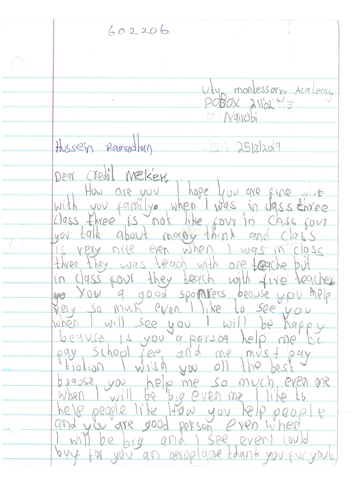 602206
Utu montessory Academy
POBOX 21102
Nairobi
Hussein Ramadhan
25/3/2019
Dear Credit Mekers
How are you I hope you are fine
with you family. when I was in class three
class three is not like four in class four
you talk about many think and class
is very nice even when I was in class
three they was teach with one teache but
in class four they teach with five teacher
You a good sponers beause you help
very so mush even I like to see you
when I will see you I will be happy
beause is you a person help me to
pay school fee and me must pay
tiotion I wish you all the best
beause you help me so much even me
when I will be big even me I like to
help people like How you help people
and you are good person even when
I will be big and I see even I could
buy for you an aeroplane thank you for